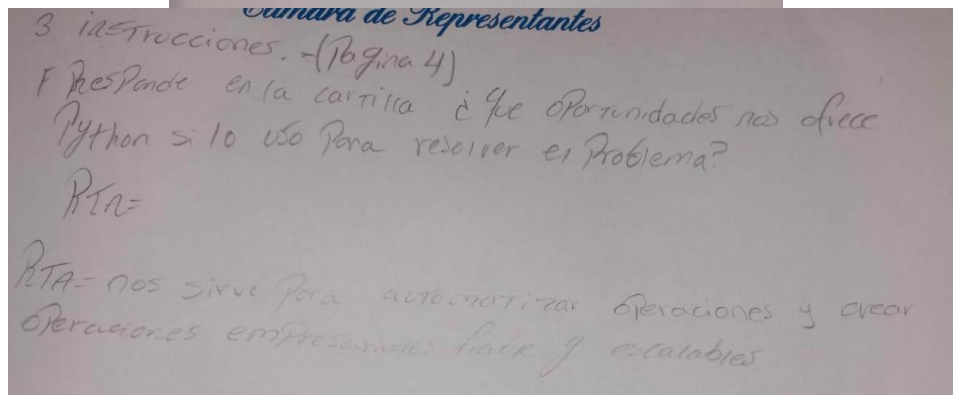 Cámara de Representantes
3 instrucciones. -(Pagina 4)
F Responde en la cartilla ¿ que oportunidades nos ofrece
Python si lo uso para resolver el Problema?
RTA=
RTA= nos sirve Para automatizar operaciones y crear
operaciones empresariales y escalables